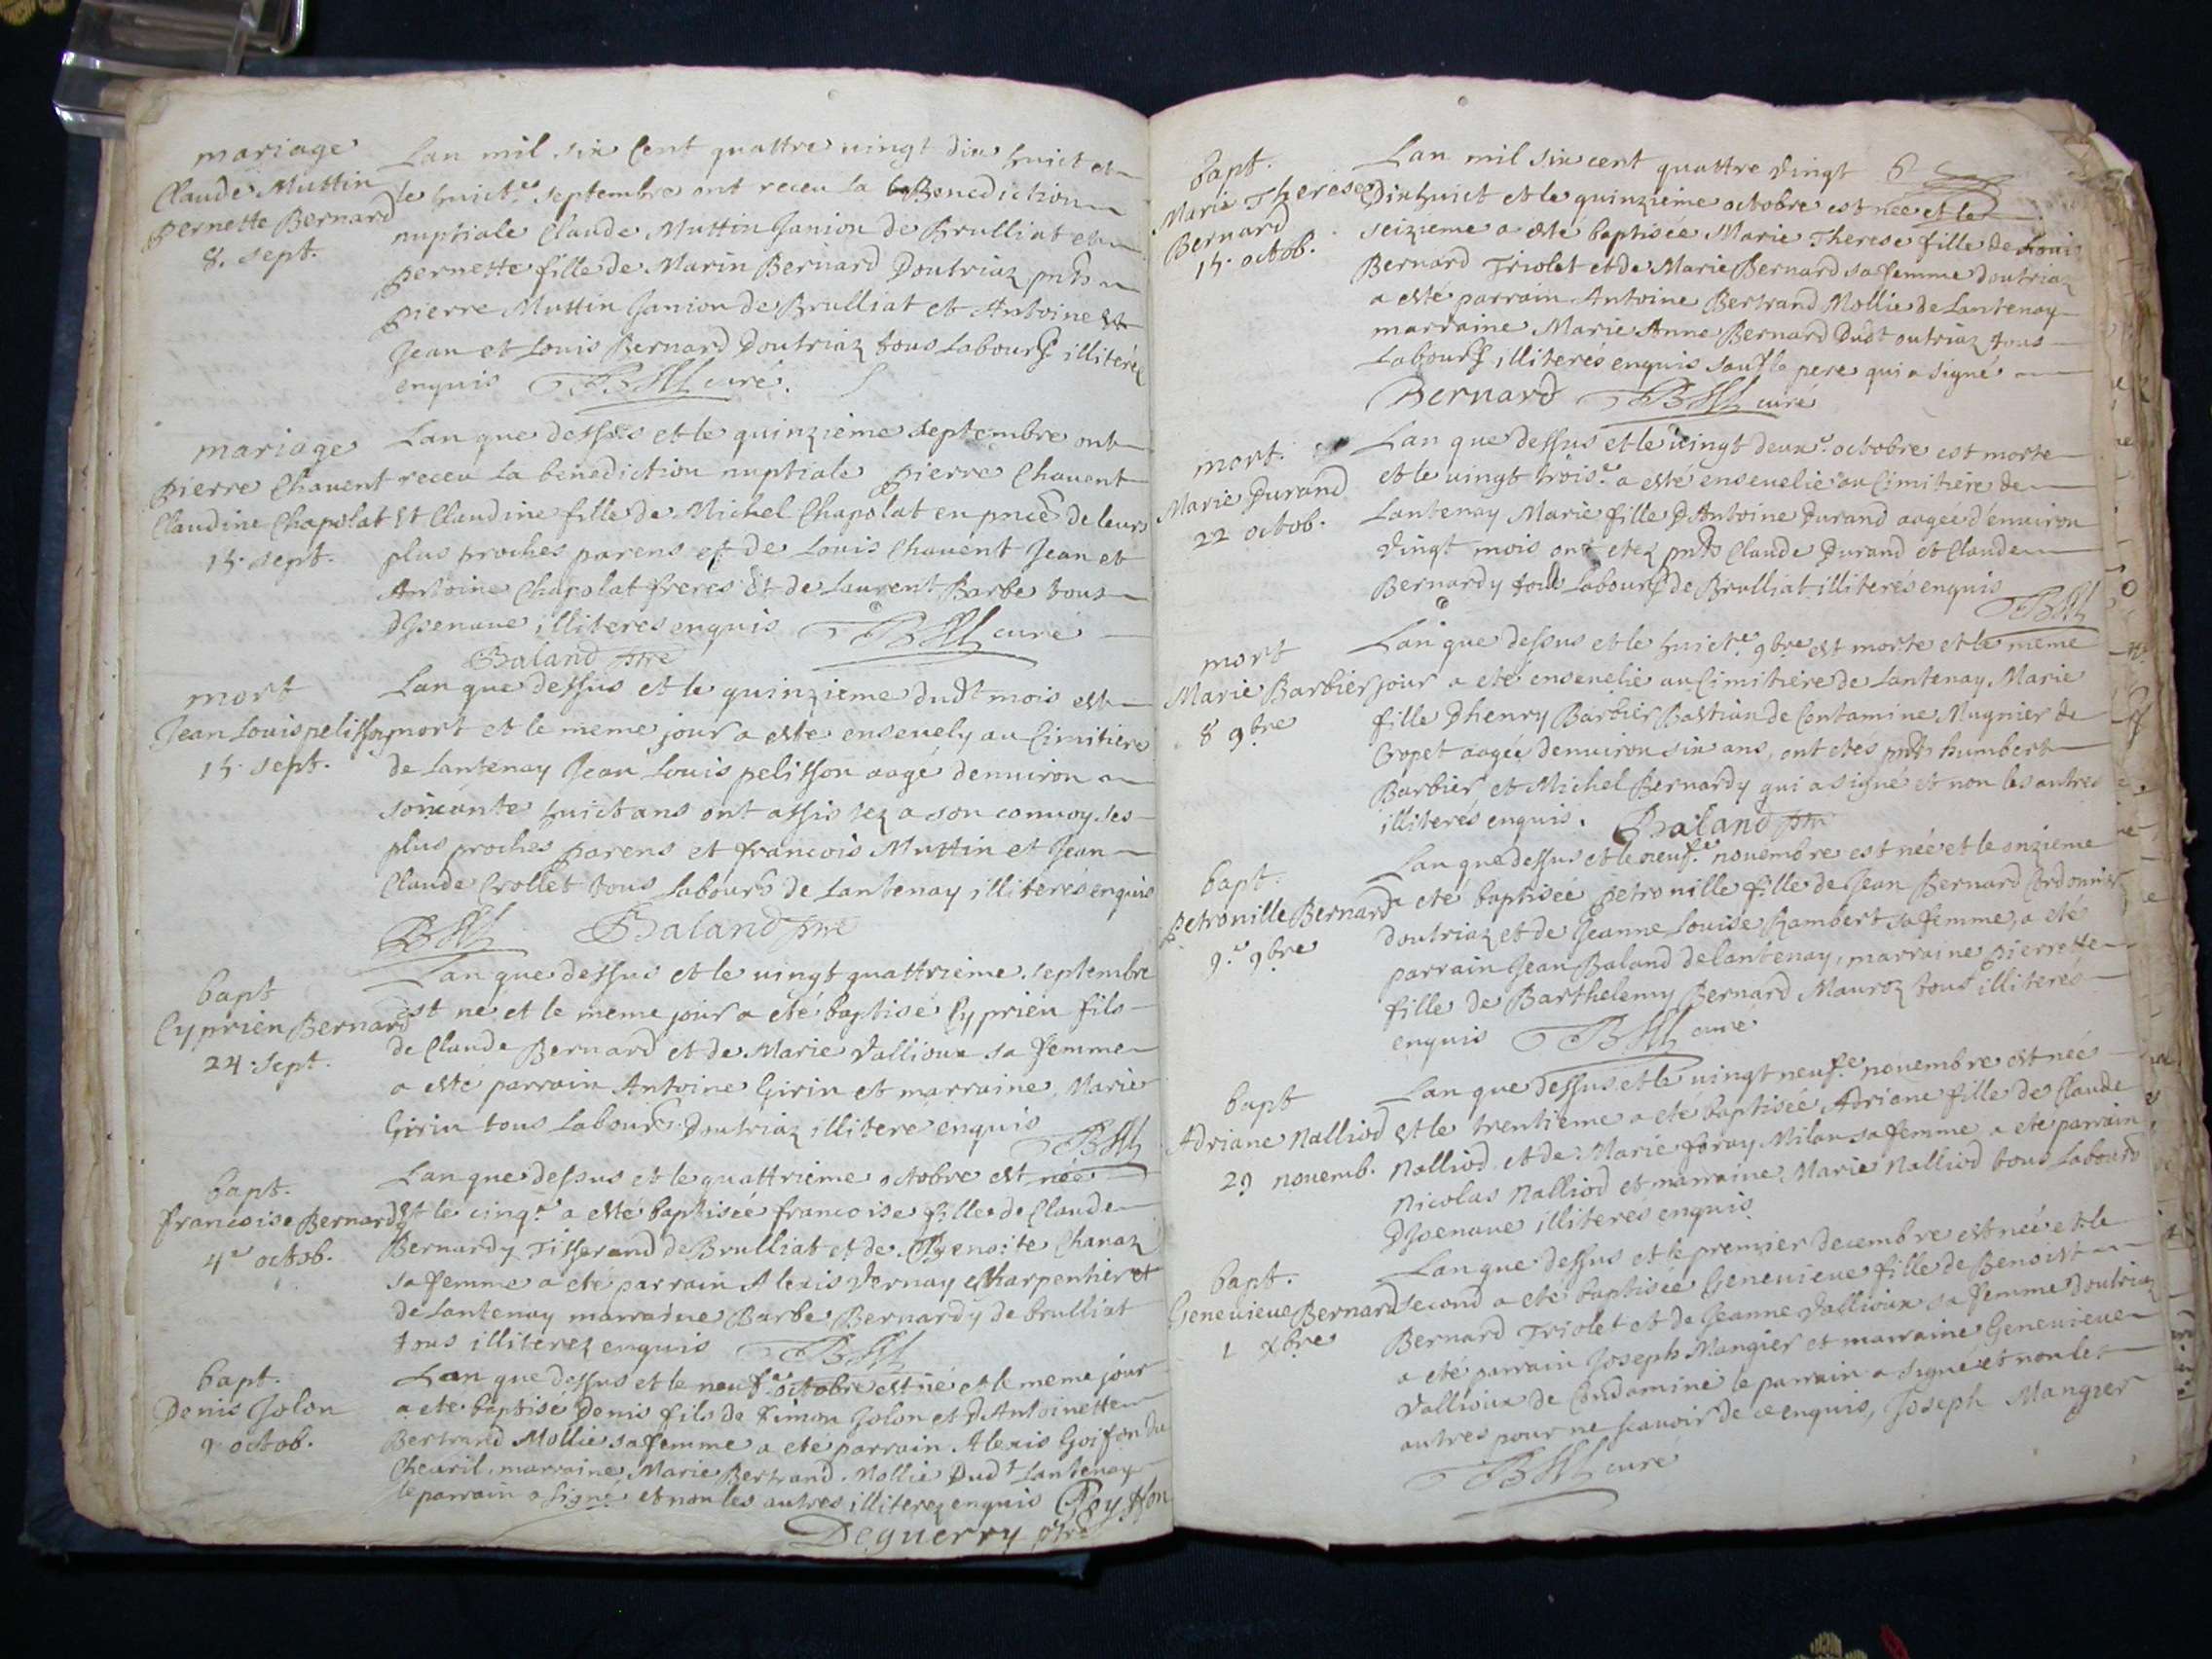 mariage
Claude Muttin
Pernette Bernard
8. sept.
Lan mil six Cent quattre vingt dix huict et
le huict.e septembre ont receu la Benediction
nuptiale Claude Muttin Janion de Brulliat et
Pernette fille de Marin Bernard Doutriaz pnts
pierre Muttin Janion de Brulliat et Antoine et
Jean et Louis Bernard Doutriaz tous Labours illiterés
enquis curé.
mariage
pierre Chavent
Claudine Chapolat
15. sept.
Lan que dessus et le quinzieme septembre ont
receu la benediction nuptiale pierre Chavent
et Claudine fille de Michel Chapolat en pnce de leurs
plus proches parens et de Louis Chavent Jean et
Antoine Chapolat freres et de Laurent Barbe tous
Dizenave illiteres enquis curé
Baland ptre
mort
Jean Louis pelisson
15. sept.
Lan que dessus et le quinzieme dudt mois est
mort et le meme jour a esté ensevely au Cimitiere
de Lantenay Jean Louis pelisson aagé denviron
soixante huict ans ont assistez a son convoy ses
plus proches parens et francois Muttin et Jean
Claude Crollet tous Labours de Lantenay illiterés enquis
Baland ptre
bapt
Cyprien Bernard
24. sept.
Lan que dessus et le vingt quattrieme septembre
est ne et le meme jour a eté baptisé Cyprien fils
de Claude Bernard et de Marie Vallioux sa femme
a esté parrain Antoine Girin et marraine Marie
Girin tous Labours Doutriaz illiteré enquis
bapt.
francoise Bernardy
4e octob.
Lan que dessus et le quattrieme octobre est née
et le cinq.e a esté baptisée francoise fille de Claude
Bernardy Tisserand de Brulliat et de Benoite Chanaz
sa femme a eté parrain Alexis Vernay Charpentier et
de Lantenay marraine Barbe Bernardy de brulliat
tous illiterez enquis
bapt.
Denis Jolon
9 octob.
Lan que dessus et le neuf.e octobre est né et le meme jour
a ete baptisé Denis fils de Simon Jolon et DAntoinette
Bertrand Mollie sa femme a eté parrain Alexis Goifon du
Chevril. marraine Marie Bertrand Mollie Dudt Lantenay
le parrain a signé et non les autres illiterez enquis
Deguerry ptre
bapt.
Marie Therese
Bernard
15. octob.
Lan mil six cent quattre vingt
Dixhuict et le quinzieme octobre est née et le
seizieme a esté baptisée Marie Therese fille de Louis
Bernard Triolet et de Marie Bernard sa femme doutriaz
a esté parrain Antoine Bertrand Mollie de Lantenay
marraine Marie Anne Bernard Dudt outriaz tous
Labours illiterés enquis sauf le pere qui a signé
Bernard curé
mort.
Marie Durand
22 octob.
Lan que dessus et le vingt deux.e octobre est morte
et le vingt trois.e a esté ensevelie au Cimitiere de
Lantenay Marie fille DAntoine Durand aagée d'environ
vingt mois ont etez pnts Claude Durand et Claude
Bernardy tous Labours de Brulliat illiterés enquis
mort
Marie Barbier
8 9bre
Lan que dessus et le huict.e 9bre est morte et le meme
jour a eté ensevelie au Cimitiere de Lantenay Marie
fille Dhenry Barbier Bastian de Contamine Mugnier de
Cropet aagée denviron six ans, ont etés pnts humbert
Barbier et Michel Bernardy qui a signé et non les autres
illiterés enquis. Baland ptre
bapt.
Petronille Bernard
9.e 9bre
Lan que dessus et le neuf.e novembre est née et le onzieme
a eté baptisée petronille fille de Jean Bernard Cordonnier
doutriaz et de Jeanne Louise Rambert sa femme, a eté
parrain Jean Baland de lantenay, marraine pierrette
fille de Barthelemy Bernard Mauroz tous illiterés
enquis curé
bapt
Adriane Nalliod
29 novemb.
Lan que dessus et le vingt neuf.e novembre est née
et le trentieme a eté baptisée Adriane fille de Claude
Nalliod et de Marie foray Milan sa femme a eté parrain
Nicolas Nalliod et marraine Marie Nalliod tous Labours
Dizenave illiterés enquis
bapt.
Genevieve Bernard
1 Xbre
Lan que dessus et le premier decembre est née et le
second a eté baptisée Genevieve fille de Benoist
Bernard Triolet et de Jeanne Vallioux sa femme doutriaz
a eté parrain Joseph Mangier et marraine Genevieve
Vallioux de Condamine le parrain a signé et non les
autres pour ne scavoir de ce enquis, Joseph Mangier
curé